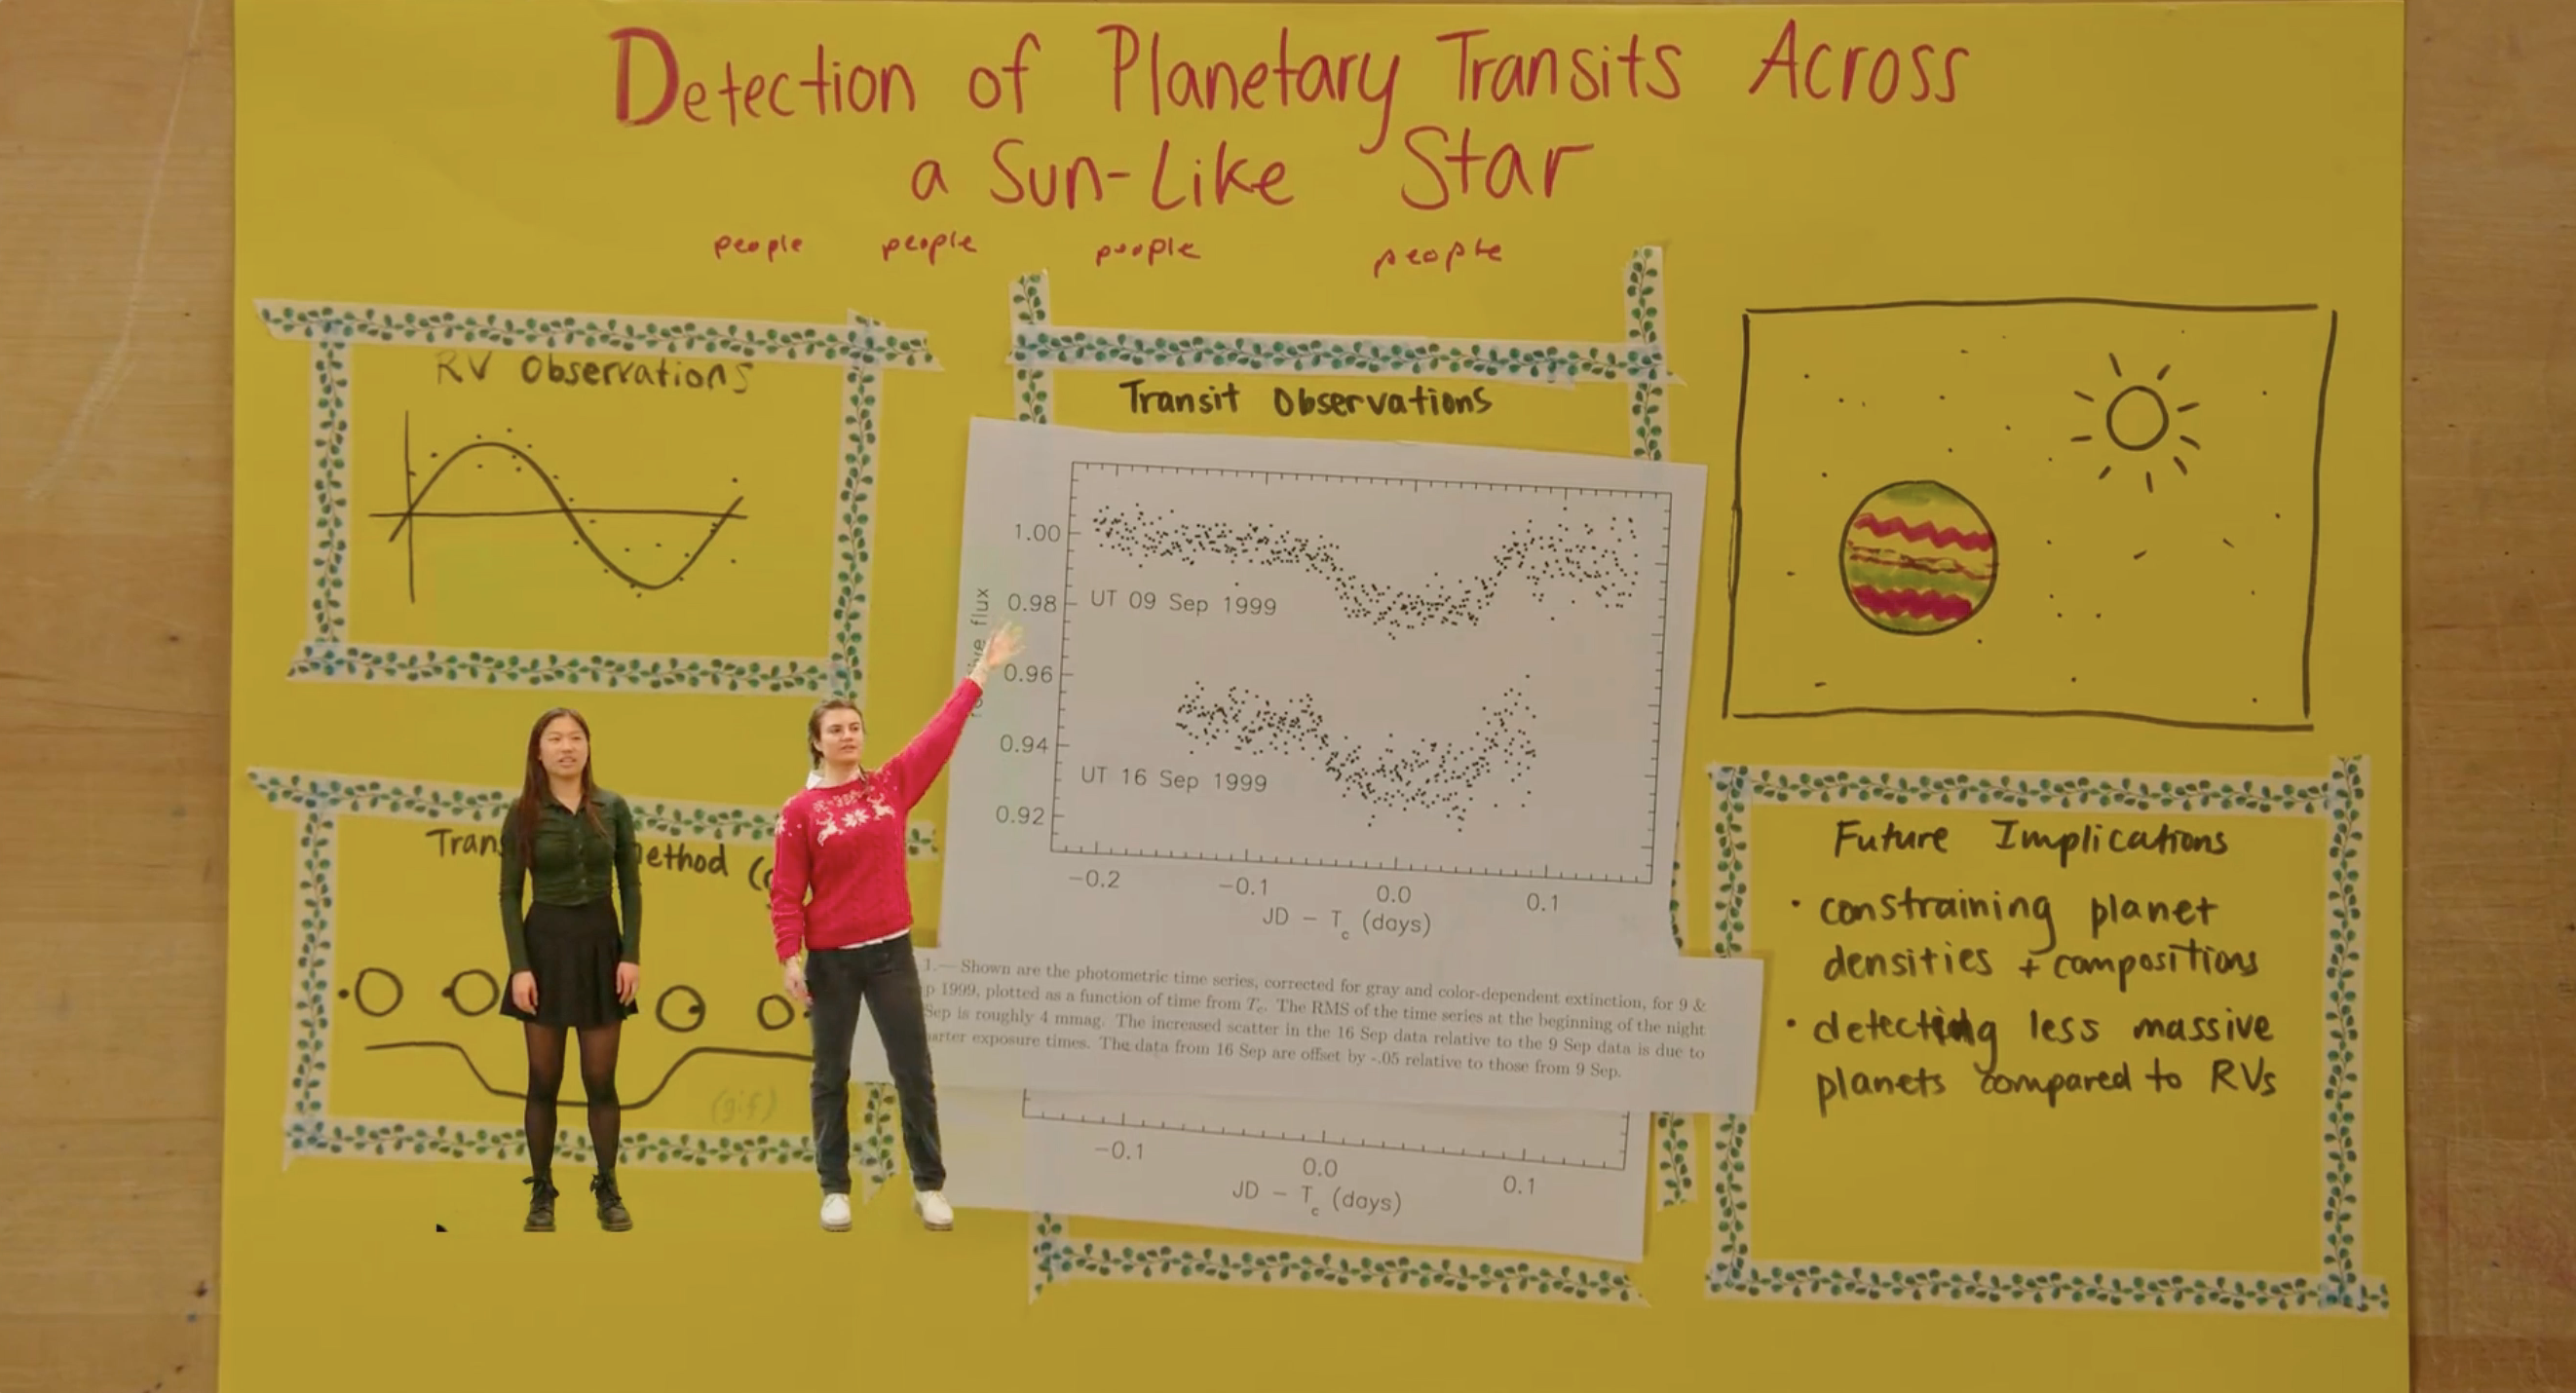 Detection of Planetary Transits Across
a Sun-Like Star
people people people people
RV Observations
Transit Observations
1.00
0.98
0.96
0.94
0.92
flux
UT 09 Sep 1999
UT 16 Sep 1999
−0.2 −0.1 0.0 0.1
JD − Tc (days)
1.— Shown are the photometric time series, corrected for gray and color-dependent extinction, for 9 &
p 1999, plotted as a function of time from Tc. The RMS of the time series at the beginning of the night
Sep is roughly 4 mmag. The increased scatter in the 16 Sep data relative to the 9 Sep data is due to
arter exposure times. The data from 16 Sep are offset by -.05 relative to those from 9 Sep.
−0.1 0.0 0.1
JD − Tc (days)
Tran ethod (
(gif)
Future Implications
• constraining planet
densities + compositions
• detecting less massive
planets compared to RVs